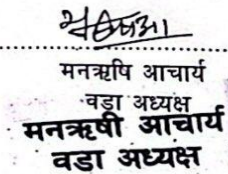 मनऋषि आचार्य
वडा अध्यक्ष
मनऋषी आचार्य
वडा अध्यक्ष